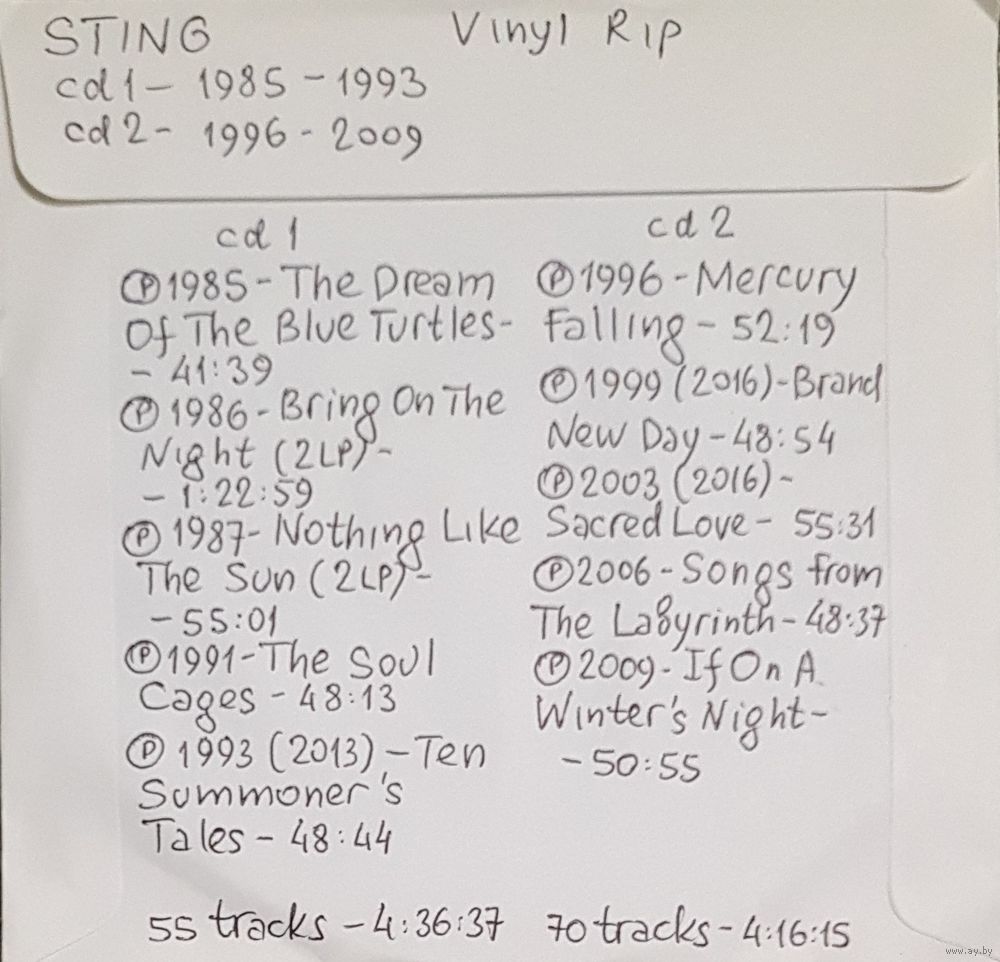 STING Vinyl Rip
cd 1 - 1985 - 1993
cd 2 - 1996 - 2009
cd 1
Ⓟ 1985 - The Dream
Of The Blue Turtles -
- 41:39
Ⓟ 1986 - Bring On The
Night (2LP) -
- 1:22:59
Ⓟ 1987 - Nothing Like
The Sun (2LP) -
- 55:01
Ⓟ 1991 - The Soul
Cages - 48:13
Ⓟ 1993 (2013) - Ten
Summoner's
Tales - 48:44
55 tracks - 4:36:37
cd 2
Ⓟ 1996 - Mercury
Falling - 52:19
Ⓟ 1999 (2016) - Brand
New Day - 48:54
Ⓟ 2003 (2016) -
Sacred Love - 55:31
Ⓟ 2006 - Songs from
The Labyrinth - 48:37
Ⓟ 2009 - If On A
Winter's Night -
- 50:55
70 tracks - 4:16:15
www.ay.by